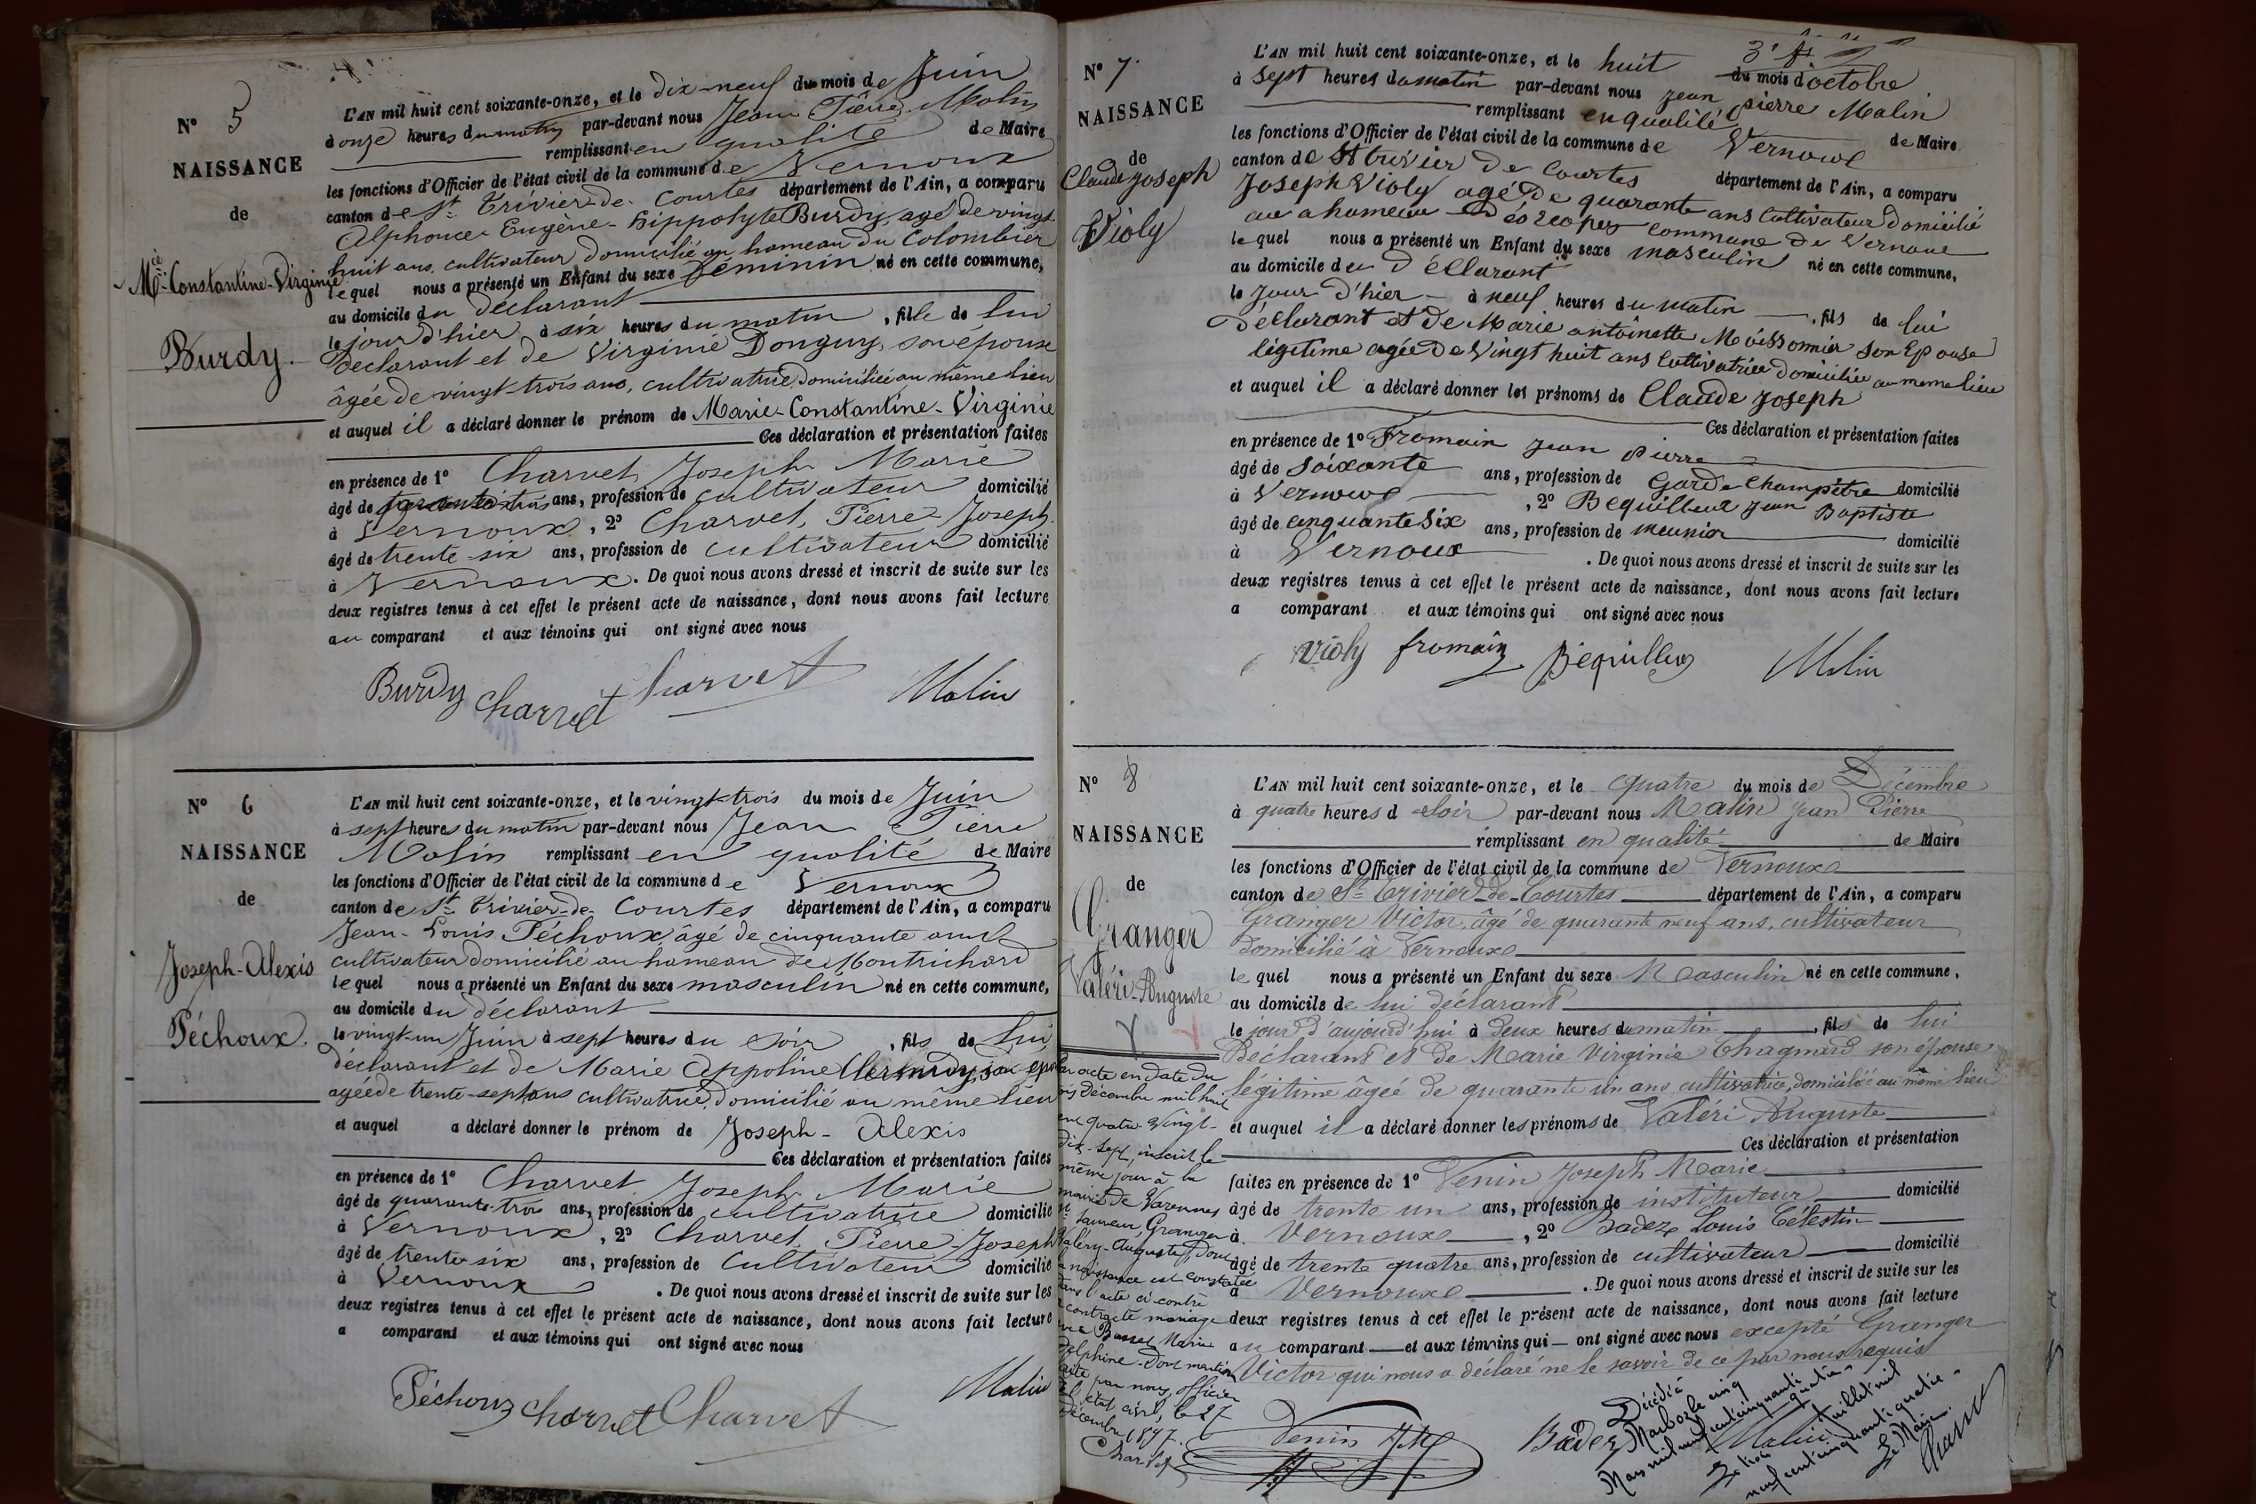 N° 5
NAISSANCE
de
Mie Constantine-Virginie
Burdy.
L'AN mil huit cent soixante-onze, et le dix-neuf du mois de Juin
à onze heures du matin par-devant nous Jean Pierre Malin
remplissant en qualité de Maire
les fonctions d'Officier de l'état civil de la commune de Vernoux
canton de St Trivier-de-Courtes département de l'Ain, a comparu
Alphonce-Eugène-hippolyte Burdy, agé de vingt
huit ans, cultivateur domicilié au hameau du Colombier
lequel nous a présenté un Enfant du sexe féminin né en cette commune,
au domicile du déclarant
le jour d'hier à six heures du matin, fille de lui
Déclarant et de Virginie Donguy, son épouse
âgée de vingt-trois ans, cultivatrice, domiciliée au même lieu
et auquel il a déclaré donner le prénom de Marie-Constantine-Virginie
Ces déclaration et présentation faites
en présence de 1° Charvet Joseph Marie
âgé de trois ans, profession de cultivateur domicilié
à Vernoux, 2° Charvet, Pierre Joseph
âgé de trente-six ans, profession de cultivateur domicilié
à Vernoux. De quoi nous avons dressé et inscrit de suite sur les
deux registres tenus à cet effet le présent acte de naissance, dont nous avons fait lecture
au comparant et aux témoins qui ont signé avec nous
Burdy Charvet Charvet Malin
N° 6
NAISSANCE
de
Joseph-Alexis
Péchoux.
L'AN mil huit cent soixante-onze, et le vingt-trois du mois de Juin
à sept heures du matin par-devant nous Jean Pierre
Malin remplissant en qualité de Maire
les fonctions d'Officier de l'état civil de la commune de Vernoux
canton de St Trivier-de-Courtes département de l'Ain, a comparu
Jean-Louis Péchoux, âgé de cinquante ans
cultivateur domicilié au hameau de Montrichard
lequel nous a présenté un Enfant du sexe masculin né en cette commune,
au domicile du déclarant
le vingt-un Juin à sept heures du soir, fils de lui
déclarant et de Marie Appoline son
agée de trente-sept ans cultivatrice, domicilié au même lieu
et auquel a déclaré donner le prénom de Joseph-Alexis
Ces déclaration et présentation faites
en présence de 1° Charvet Joseph Marie
âgé de quarante-trois ans, profession de cultivatrice domicilié
à Vernoux, 2° Charvet Pierre Joseph
âgé de trente six ans, profession de Cultivateur domicilié
à Vernoux. De quoi nous avons dressé et inscrit de suite sur les
deux registres tenus à cet effet le présent acte de naissance, dont nous avons fait lecture
a comparant et aux témoins qui ont signé avec nous
Péchoux Charvet Charvet Malin
N° 7.
NAISSANCE
de
Claude joseph
Violy
L'AN mil huit cent soixante-onze, et le huit du mois d'octobre
à sept heures du matin par-devant nous jean pierre Malin
remplissant en qualité de Maire
les fonctions d'Officier de l'état civil de la commune de Vernoux
canton de St trivier De Courtes département de l'Ain, a comparu
Joseph Violy agé De quarante ans Cultivateur Domicilié
au hameau commune De Vernoux
lequel nous a présenté un Enfant du sexe masculin né en cette commune,
au domicile du Déclarant
le jour d'hier à neuf heures du matin, fils de lui
Déclarant et De Marie antoinette Moissonnier son Epouse
légitime agée De Vingt huit ans Cultivatrice Domiciliée au meme lieu
et auquel il a déclaré donner les prénoms de Claude joseph
Ces déclaration et présentation faites
en présence de 1° Fromain jean pierre
âgé de soixante ans, profession de Garde Champêtre domicilié
à Vernoux, 2° Bequilleux jean Baptiste
âgé de cinquante six ans, profession de meunier domicilié
à Vernoux. De quoi nous avons dressé et inscrit de suite sur les
deux registres tenus à cet effet le présent acte de naissance, dont nous avons fait lecture
a comparant et aux témoins qui ont signé avec nous
Violy fromain Malin
N° 8
NAISSANCE
de
Granger
Valéri-Auguste
L'AN mil huit cent soixante-onze, et le quatre du mois de Décembre
à quatre heures du soir par-devant nous Malin Jean Pierre
remplissant en qualité de Maire
les fonctions d'Officier de l'état civil de la commune de Vernoux
canton de St Trivier-de-Courtes département de l'Ain, a comparu
Granger Victor, âgé de quarante neuf ans, cultivateur
Domicilié à Vernoux
lequel nous a présenté un Enfant du sexe Masculin né en cette commune,
au domicile de lui déclarant
le jour d'aujourd'hui à Deux heures du matin, fils de lui
Déclarant et de Marie Virginie Chagnard son épouse
légitime âgée de quarante un ans cultivatrice, domiciliée au même lieu
et auquel il a déclaré donner les prénoms de Valéri Auguste
Ces déclaration et présentation
faites en présence de 1° Venin Joseph Marie
âgé de trente un ans, profession de instituteur domicilié
à Vernoux, 2° Badez Louis Célestin
âgé de trente quatre ans, profession de cultivateur domicilié
à Vernoux. De quoi nous avons dressé et inscrit de suite sur les
deux registres tenus à cet effet le présent acte de naissance, dont nous avons fait lecture
au comparant et aux témoins qui ont signé avec nous excepté Granger
Victor qui nous a déclaré ne le savoir de ce par nous requis
Venin J.M. Badez Malin
acte en date du
Décembre mil huit
cent quatre-vingt-
dix-sept, inscrit le
même jour à la
mairie de Varennes
St Sauveur, Granger
Valéry-Auguste, dont
la naissance est constatée
dans l'acte ci-contre
a contracté mariage
avec Marie
Delphine. Dont mention
faite par nous, officier
de l'état civil, le 27
décembre 1897.
Décédé
à Marboz le cinq
Mars mil neuf cent cinquante quatre
Le Juillet mil
neuf cent cinquante quatre.
Le Maire